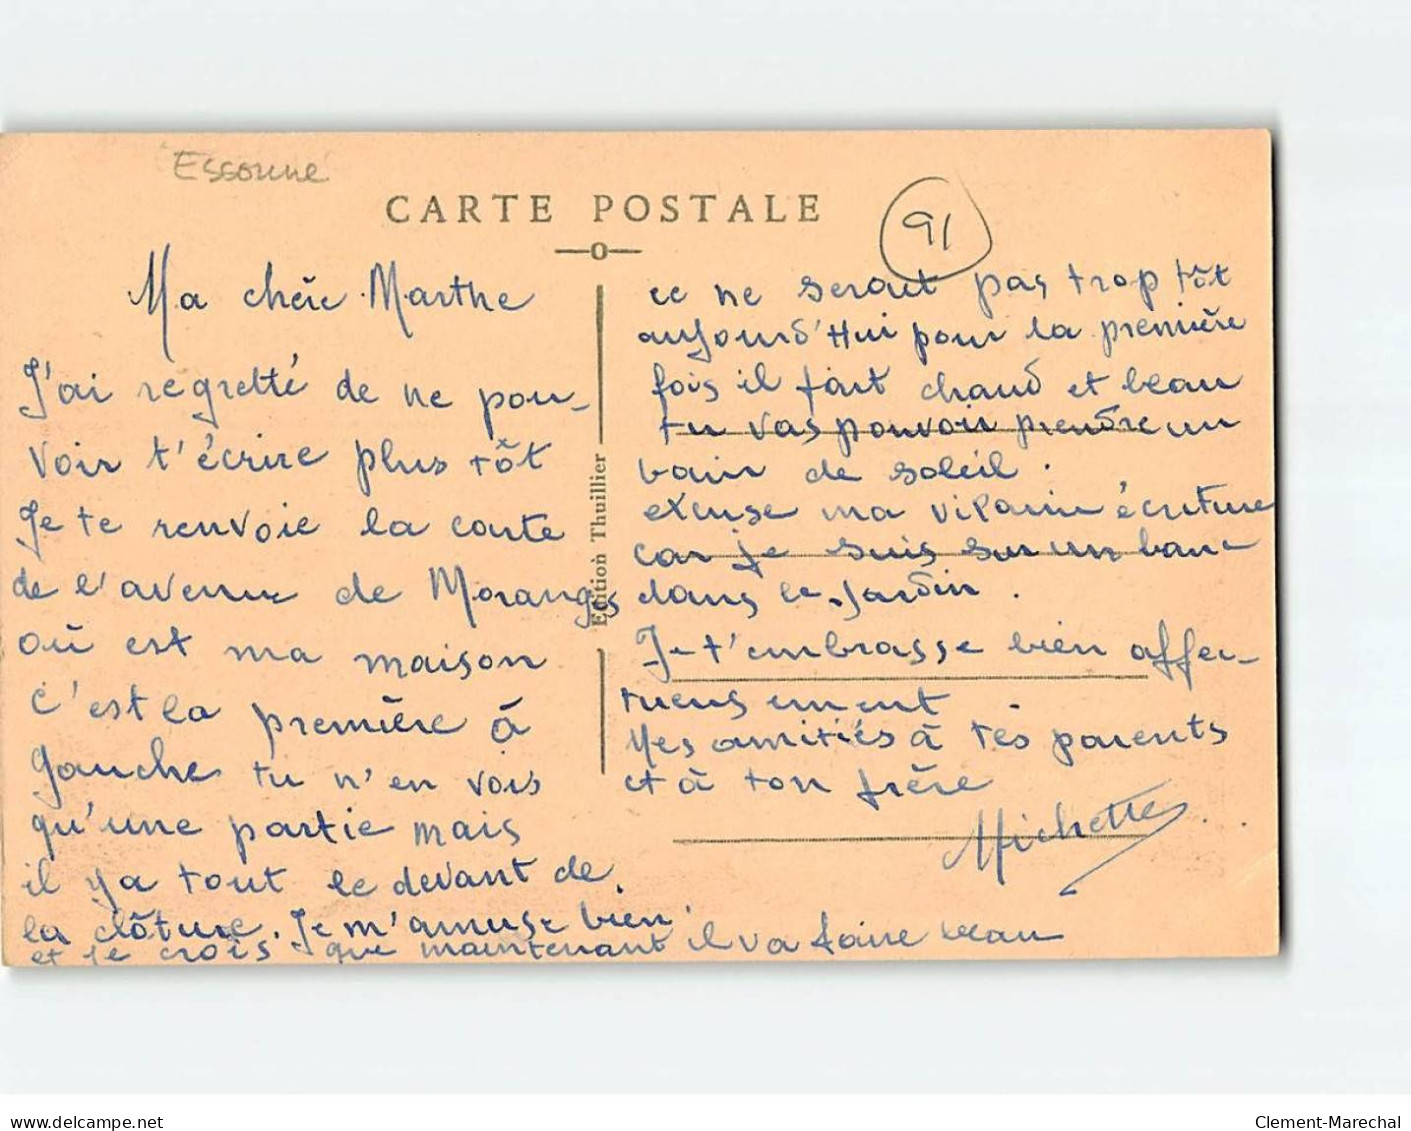 Essonne
CARTE POSTALE
91
Ma chère Marthe
J'ai regretté de ne pou-
voir t'écrire plus tôt
Je te renvoie la carte
de l'avenue de Morangis
où est ma maison
c'est la première à
gauche tu n'en vois
qu'une partie mais
il y a tout le devant de
la clôture. Je m'amuse bien.
et je crois que maintenant il va faire beau
Edition Thuillier
ce ne serait pas trop tôt
aujourd'Hui pour la première
fois il fait chaud et beau
tu vas pouvoir prendre un
bain de soleil.
excuse ma vilaine écriture
car je suis sur un banc
dans le jardin.
Je t'embrasse bien affec-
tueusement
Mes amitiés à tes parents
et à ton frère
Michette
delcampe.net
Clement-Marechal